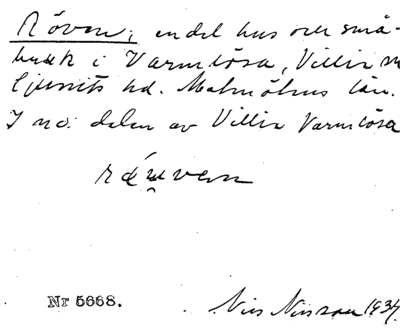 Röven; en del hus och små-
bruk i Varmlösa, Villie sn
Ljunits hd. Malmöhus län.
I nö. delen av Villie Varmlösa
Nr 5668. Nils Nilsson 1934.